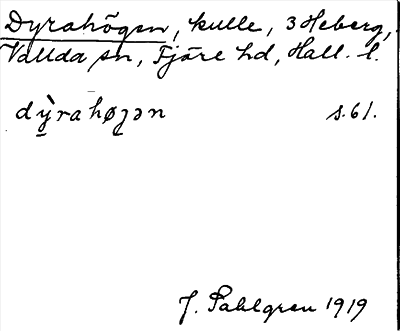 Dyrahögen, kulle, 3 Heberg,
Vallda sn, Fjäre hd, Hall. l.
dỳrahøgən s. 61.
J. Sahlgren 1919